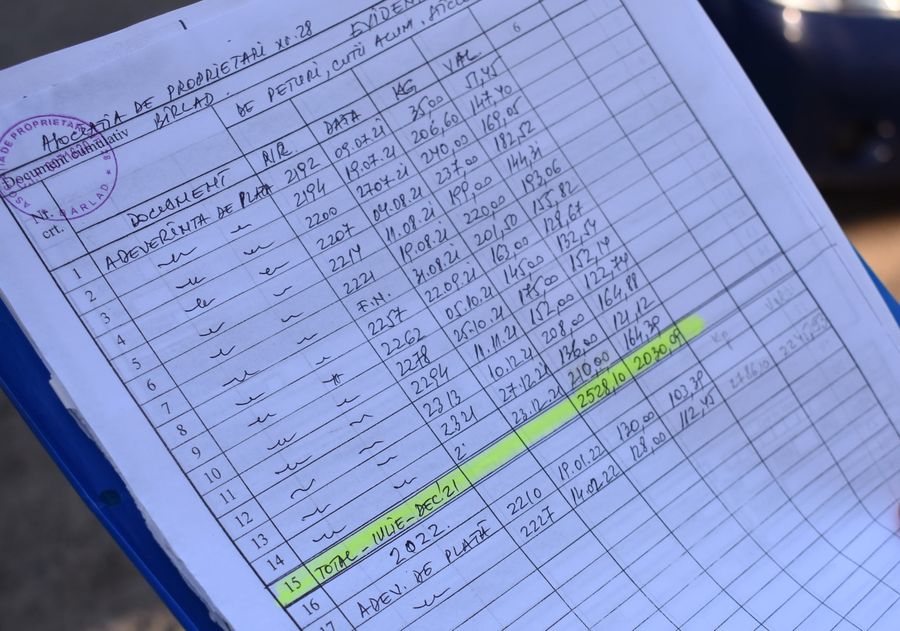 ASOCIAȚIA DE PROPRIETARI nr. 28 EVIDEN
BÎRLAD DE PETURI, CUTII ACUM,
DE PROPRIETAR
BARLAD
Document cumulativ
Nr. crt. DOCUMENT NR. DATA KG VAL. 6
1 ADEVERINTA DE PLATA 2192 09.07.21 35,00 51,45
2 〃 〃 2194 19.07.21 206,60 147,40
3 〃 〃 2200 27.07.21 240,00 169,05
4 〃 〃 2207 04.08.21 237,00 182,52
5 〃 〃 2214 11.08.21 199,00 144,31
6 〃 〃 2221 19.08.21 220,00 193,06
7 〃 〃 F.N. 31.08.21 201,50 155,82
8 〃 〃 2257 22.09.21 163,00 128,67
9 〃 〃 2262 05.10.21 145,00 132,54
10 〃 〃 2278 25.10.21 175,00 152,14
11 〃 〃 2294 11.11.21 152,00 122,74
12 〃 〃 2313 10.12.21 208,00 164,88
13 〃 〃 2321 27.12.21 136,00 121,12
14 23.12.21 210,00 164,39
15 TOTAL - IULIE - DEC'21 2528,10 2030,09
16 2022.
17 ADEV. DE PLATĂ 2210 19.01.22 130,00 103,39
〃 2227 14.02.22 128,00 112,45